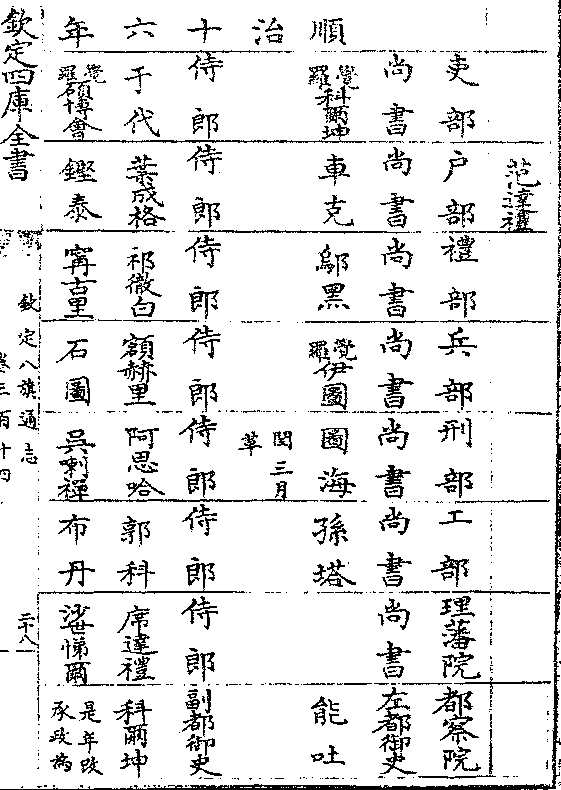 范達禮
吏部 戶部 禮部 兵部 刑部 工部 理藩院 都察院
尚書 尚書 尚書 尚書 尚書 尚書 尚書 左都御史
順 覺羅科爾坤 車克 鄔黑 覺羅伊圖 圖海 孫塔 能吐
治 閏三月革
十 侍郎 侍郎 侍郎 侍郎 侍郎 侍郎 侍郎 副都御史
六 于代 葉成格 祁徹白 額赫里 阿思哈 郭科 席達禮 科爾坤
年 覺羅碩博會 鏗泰 甯古里 石圖 吳喇禪 布丹 沙世悌爾 是年改承政為
欽定四庫全書
欽定八旗通志
卷三百十四
二十八